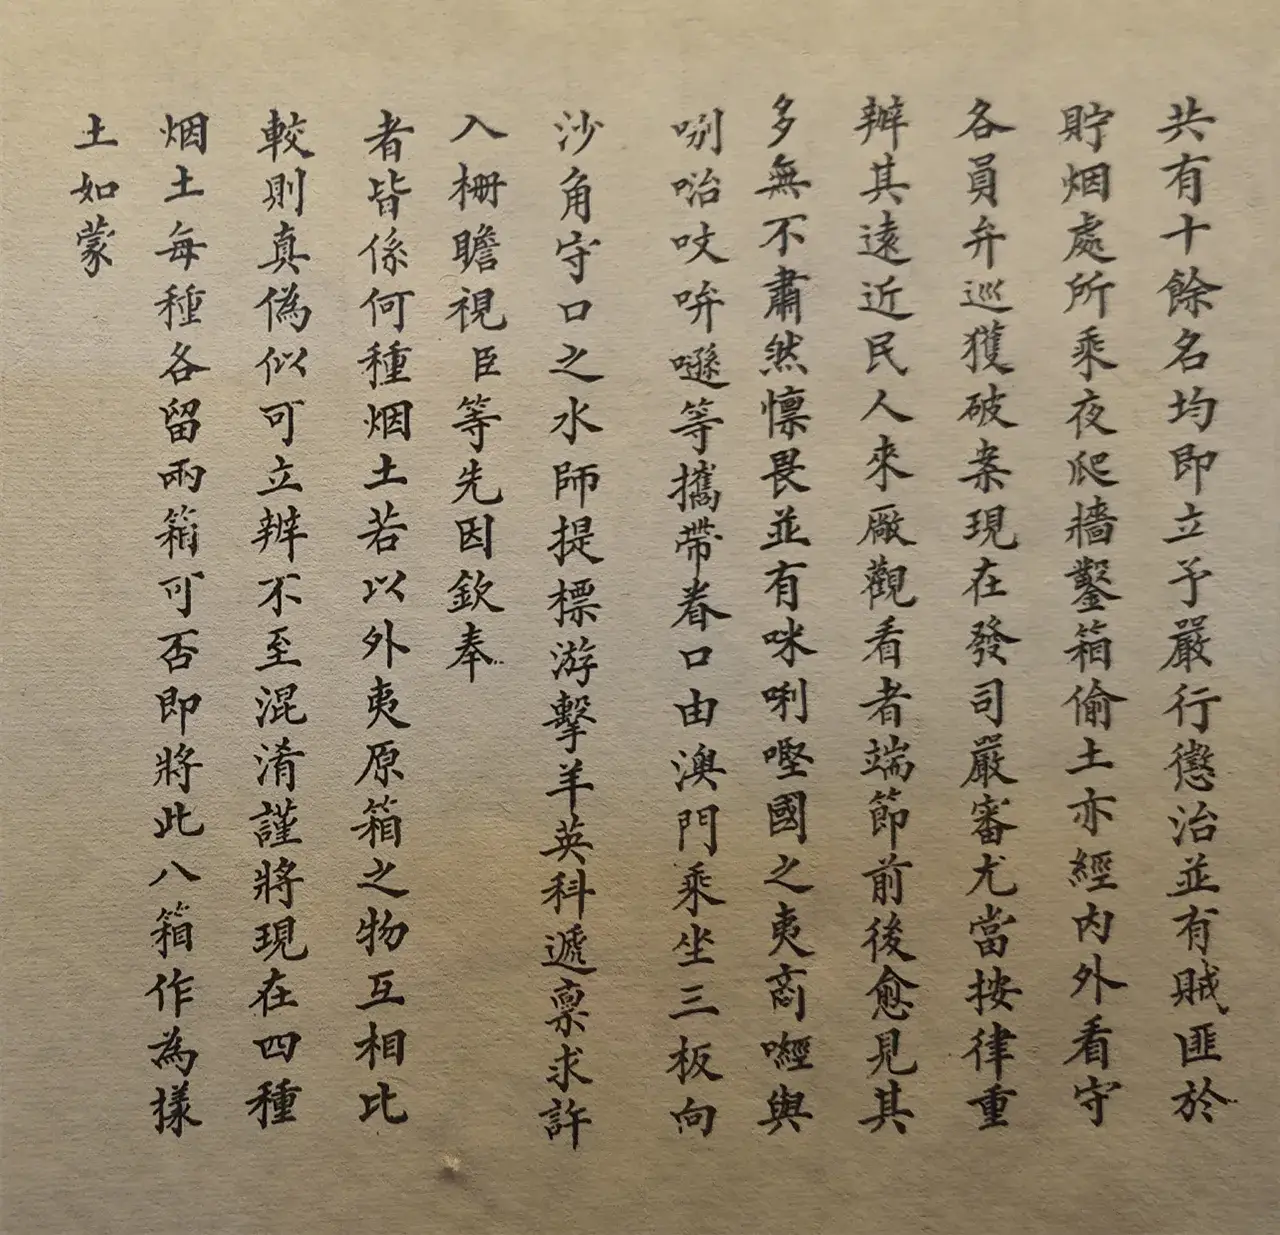 共有十餘名均即立予嚴行懲治並有賊匪於
貯烟處所乘夜爬牆鑿箱偷土亦經內外看守
各員弁巡獲破案現在發司嚴審尤當按律重
辦其遠近民人來厰觀看者端節前後愈見其
多無不肅然懍畏並有咪唎㗴國之夷商𡁠與
咧嗋吱哞𡀚等攜帶眷口由澳門乘坐三板向
沙角守口之水師提標游擊羊英科遞禀求許
入柵瞻視臣等先因欽奉
者皆係何種烟土若以外夷原箱之物互相比
較則真偽似可立辨不至混淆謹將現在四種
烟土每種各留兩箱可否即將此八箱作為樣
土如蒙